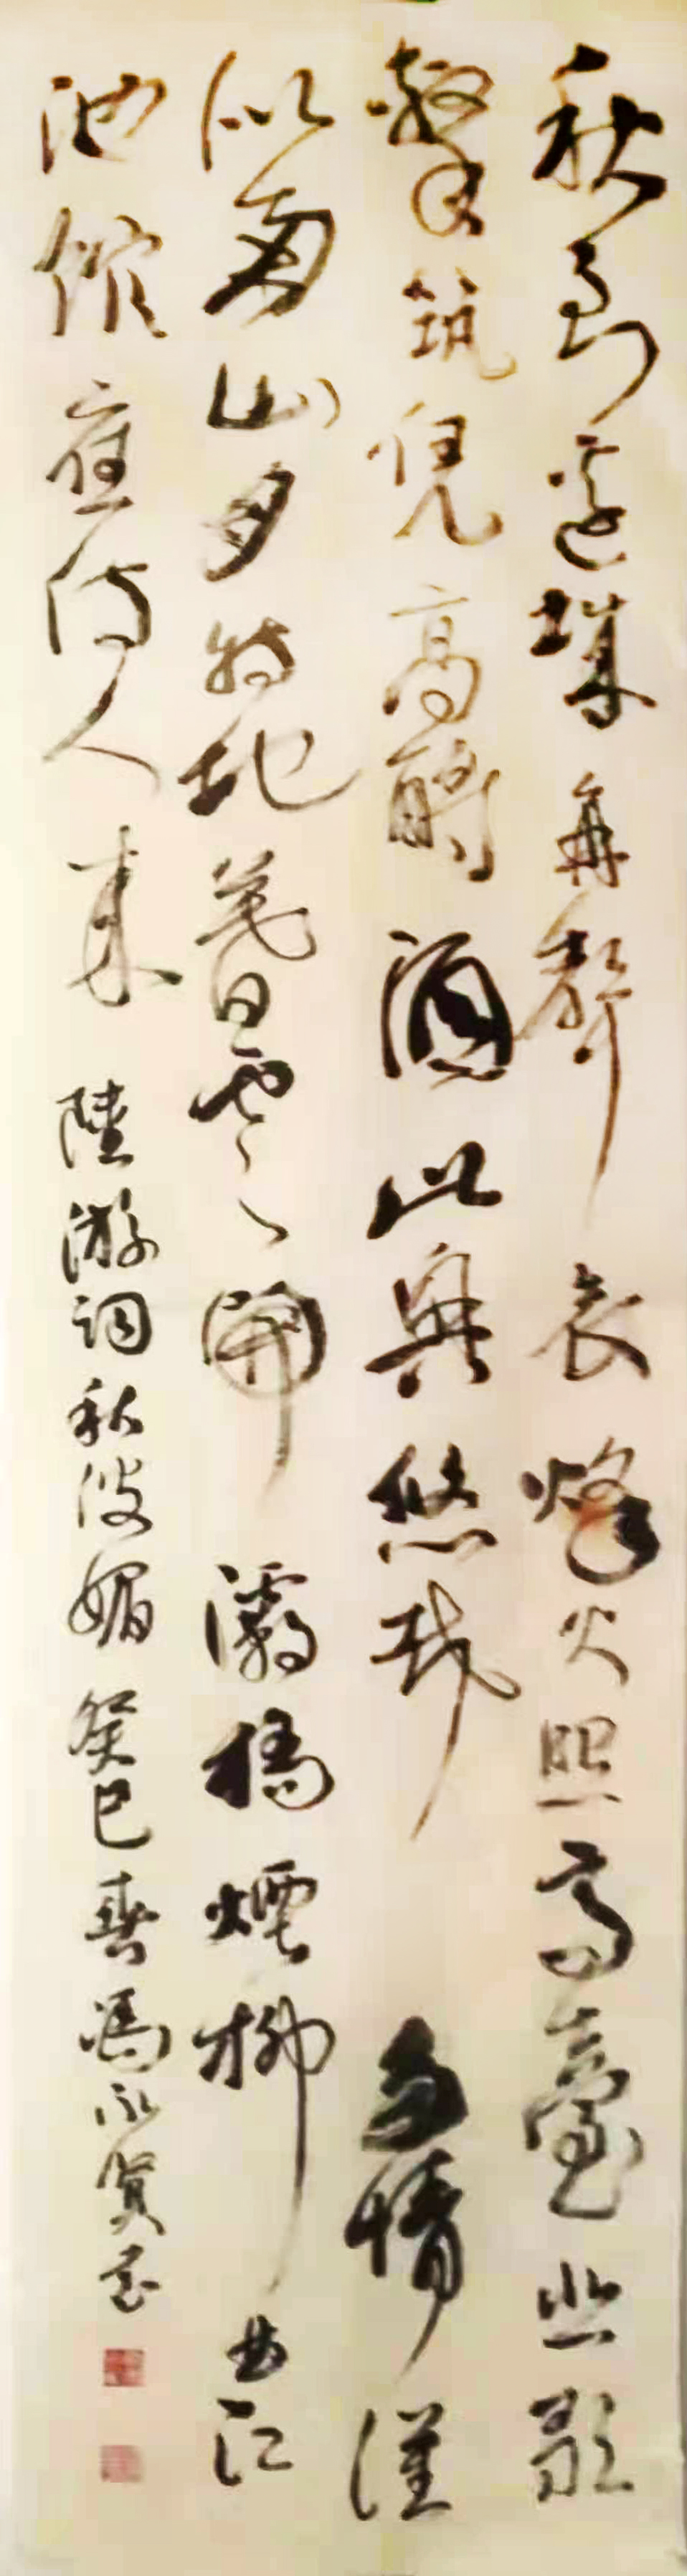 秋到邊城角聲哀烽火照高臺悲歌
擊筑凭高酹酒此興悠哉多情誰
似南山月特地暮雲開灞橋煙柳曲江
池館應待人來 陸游詞秋波媚 癸巳春馮永賀書